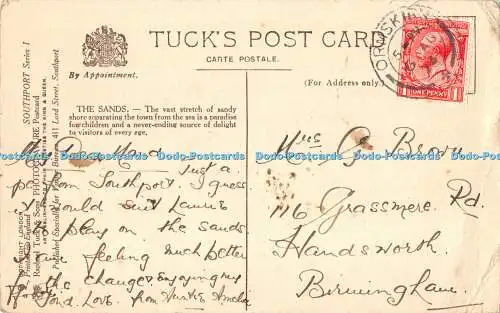 TUCK'S POST CARD
CARTE POSTALE.
By Appointment.
(For Address only)
THE SANDS. — The vast stretch of sandy
shore separating the town from the sea is a paradise
for children and a never-ending source of delight
to visitors of every age.
SOUTHPORT Series 1
Published Specially for 411 Lord Street, Southport
PHOTO Postcard
THE KING & QUEEN
LONDON
in England
ORMSKIRK
ONE PENNY
My D
Just a
p.c. from Southport. I guess
it would suit Laurie
to play on the sands.
feeling much better
for the change. Enjoying my
Fond Love. from Auntie Amelia
Mrs G Brown
116 Grassmere Rd.
Handsworth.
Birmingham.
Dodo-Postcards Dodo-Postcards Dodo-Postcards Dodo-Postcards Dodo-Postcards Dodo-Postcards